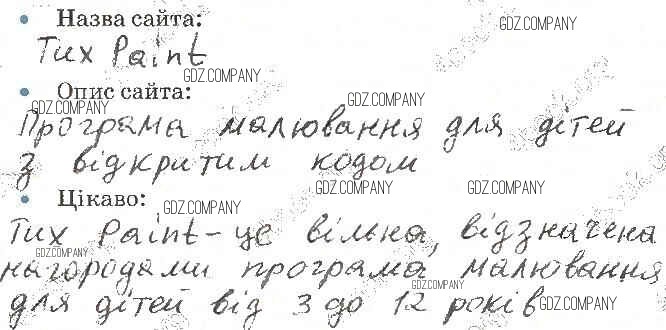 Назва сайта:
GDZ.COMPANY
Tux Paint
GDZ.COMPANY
GDZ.COMPANY
Опис сайта:
GDZ.COMPANY
GDZ.COMPANY
Програма малювання для дітей
з відкритим кодом
GDZ.COMPANY
GDZ.COMPANY
Цікаво:
GDZ.COMPANY
GDZ.COMPANY
Tux Paint - це вільна, відзначена
нагородами програма малювання
GDZ.COMPANY
для дітей від 3 до 12 років
GDZ.COMPANY